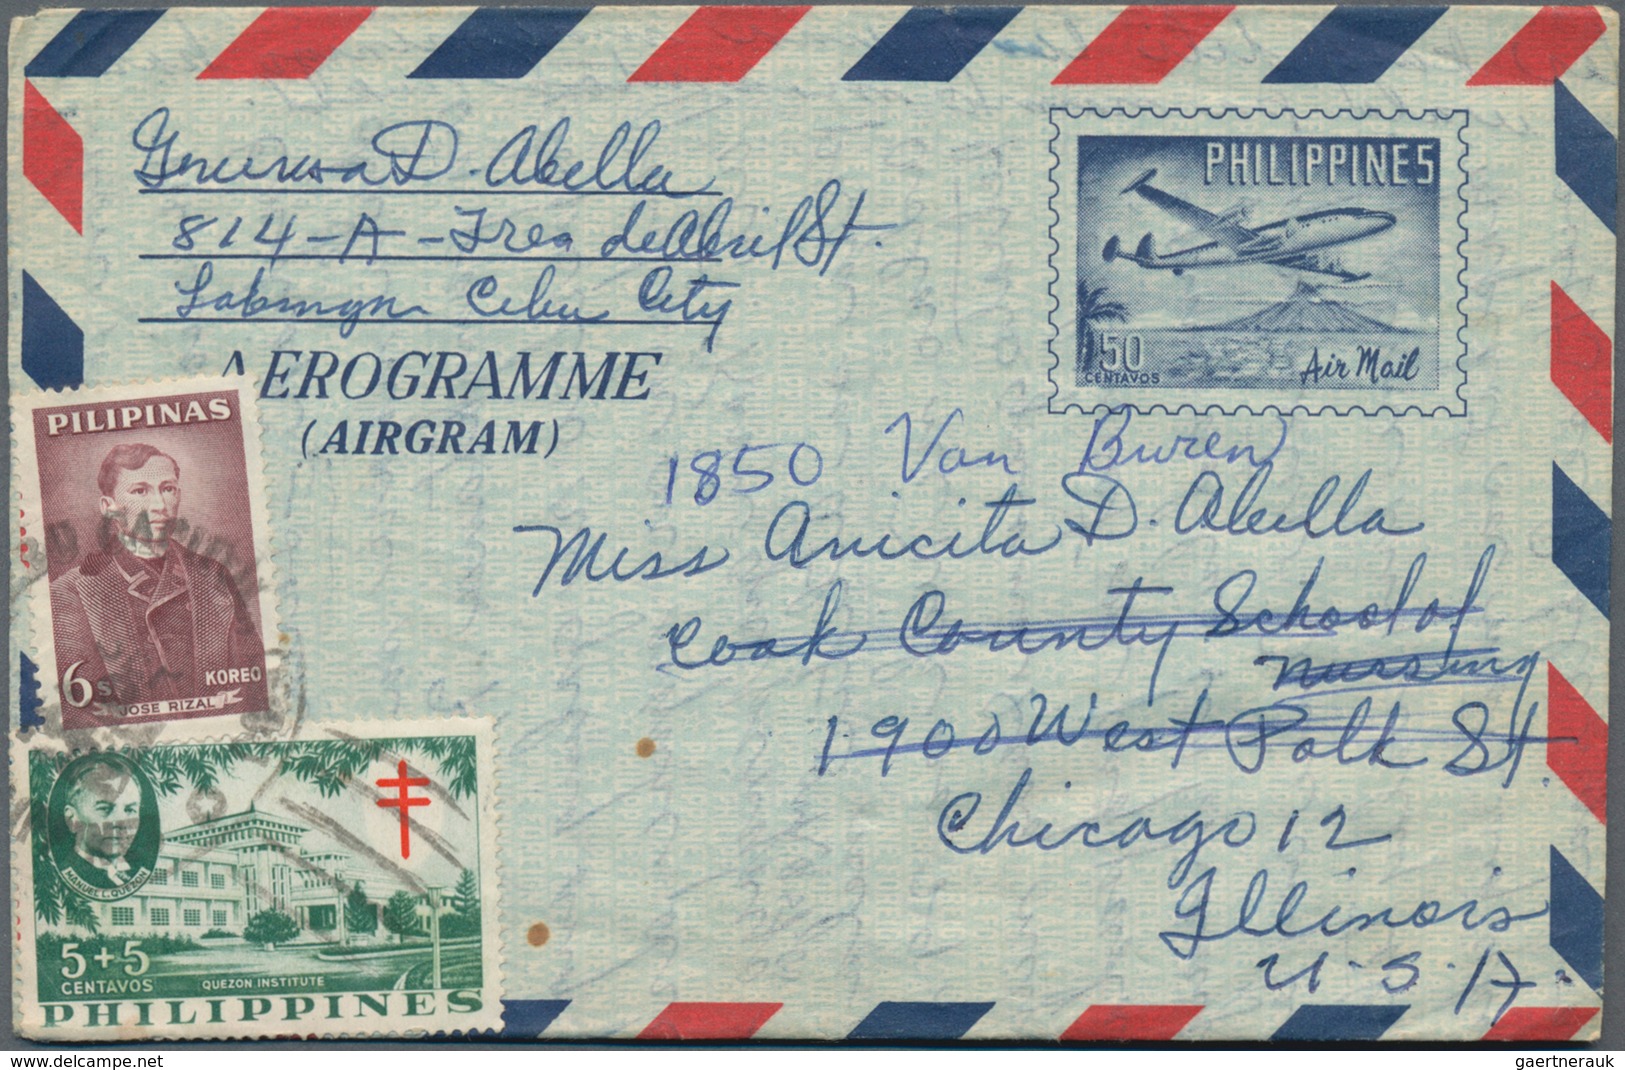 D. Abella
814-A-Tres de Abril St.
Cebu City
AEROGRAMME
(AIRGRAM)
PHILIPPINES
50
CENTAVOS
Air Mail
PILIPINAS
6s
KOREO
JOSE RIZAL
1850 Van Buren
Miss Anicita D. Abella
Cook County School of
Nursing
1900 West Polk St.
Chicago 12
Illinois
U.S.A.
MANUEL L. QUEZON
5+5
CENTAVOS
QUEZON INSTITUTE
PHILIPPINES
www.delcampe.net
gaertnerauk